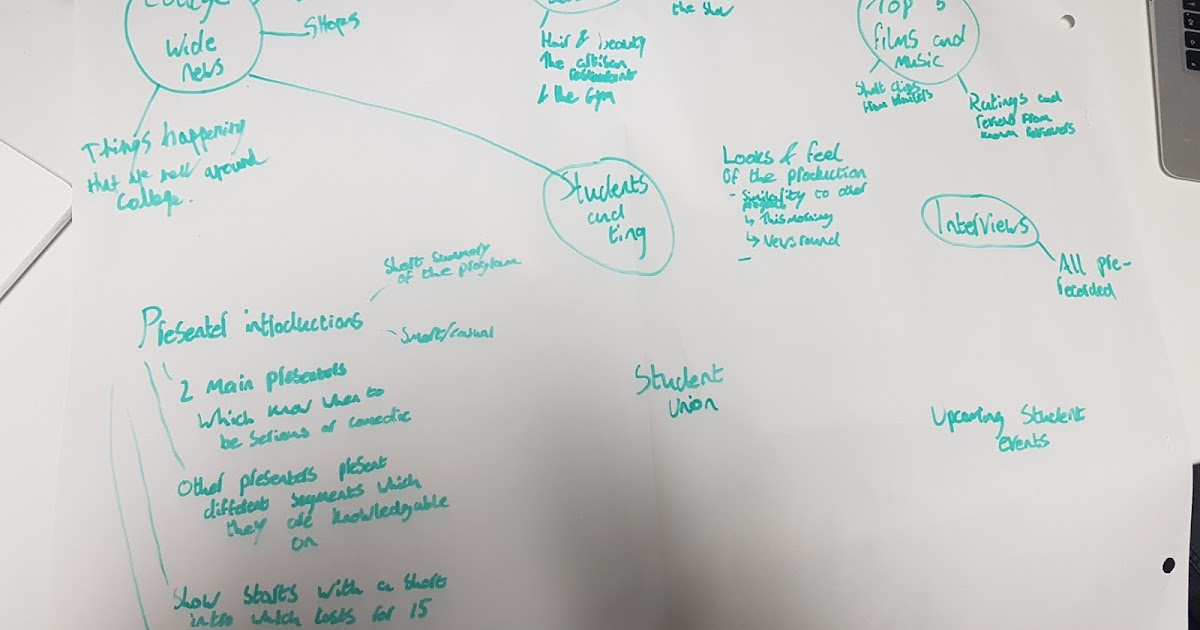 College
Wide
news
Shops
Things happening
that are well around
college.
Hair & beauty
The artisan
restaurant
& the Gym
the show
Top 5
films and
music
Short clips
from trailers
Ratings and
reviews from
known reviewers
Students
and
ting
Looks & feel
Of the production
- Similarity to other
programs
↳ This morning
↳ Newsround
-
Interviews
All pre-
recorded
Short summary
of the program
Presenter introductions
- Smart/casual
2 Main presenters
Which know when to
be serious or comedic
Other presenters present
different segments which
they are knowledgable
on
Show starts with a short
intro which lasts for 15
Student
Union
Upcoming Student
events